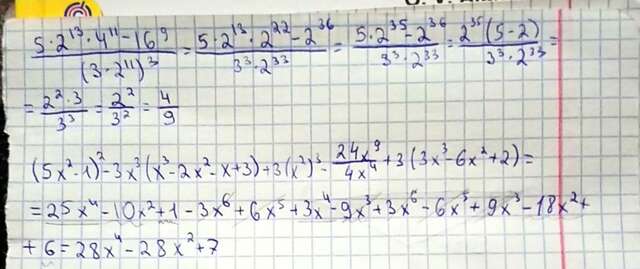 (5·2¹³·4¹¹-16⁹)/(3·2¹¹)³ = (5·2¹³·2²²-2³⁶)/(3³·2³³) = (5·2³⁵-2³⁶)/(3³·2³³) = 2³⁵(5-2)/(3³·2³³) =
= (2²·3)/3³ = 2²/3² = 4/9
(5x²-1)²-3x³(x³-2x²-x+3)+3(x²)³-24x⁹/4x⁴+3(3x³-6x²+2)=
=25x⁴-10x²+1-3x⁶+6x⁵+3x⁴-9x³+3x⁶-6x⁵+9x³-18x²+
+6=28x⁴-28x²+7